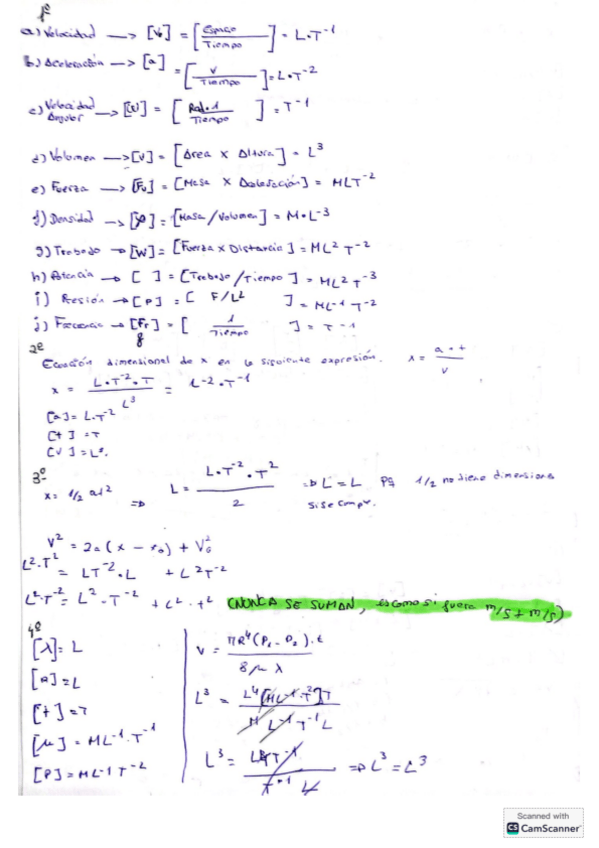 1º
a) Velocidad → [V] = [Espacio / Tiempo] = L·T⁻¹
b) Aceleración → [a] = [V / Tiempo] = L·T⁻²
c) Velocidad Angular → [ω] = [Rad·1 / Tiempo] = T⁻¹
d) Volumen → [V] = [Área x Altura] = L³
e) Fuerza → [Fu] = [Masa x Aceleración] = MLT⁻²
f) Densidad → [ρ] = [Masa/Volumen] = M·L⁻³
g) Trabajo → [W] = [Fuerza x Distancia] = ML²T⁻²
h) Potencia → [ ] = [Trabajo/Tiempo] = ML²T⁻³
i) Presión → [P] = [F/L²] = ML⁻¹T⁻²
j) Frecuencia → [Fr] = [1 / Tiempo] = T⁻¹
2º
Ecuación dimensional de x en la siguiente expresión. x = a·t / v
x = L·T⁻²·T / L³ = L⁻²·T⁻¹
[a] = L·T⁻²
[t] = T
[V] = L³.
3º
x = 1/2 at² ⇒ L = L·T⁻²·T² / 2 ⇒ L = L pq 1/2 no tiene dimensiones
si se comp.
V² = 2a(x − x₀) + V₀²
L²·T² = LT⁻²·L + L²T⁻²
L²·T⁻² = L²·T⁻² + L²·t² (NUNCA SE SUMAN, es como si fuera m/s + m/s)
4º
[λ] = L
[R] = L
[t] = T
[μ] = ML⁻¹·T⁻¹
[P] = ML⁻¹T⁻²
V = πR⁴(P₁ − P₂)·t / 8μλ
L³ = L⁴[ML⁻¹·T²]T / M L⁻¹T⁻¹L
L³ = L⁴T⁻¹ / T⁻¹ L ⇒ L³ = L³
Scanned with
CS CamScanner